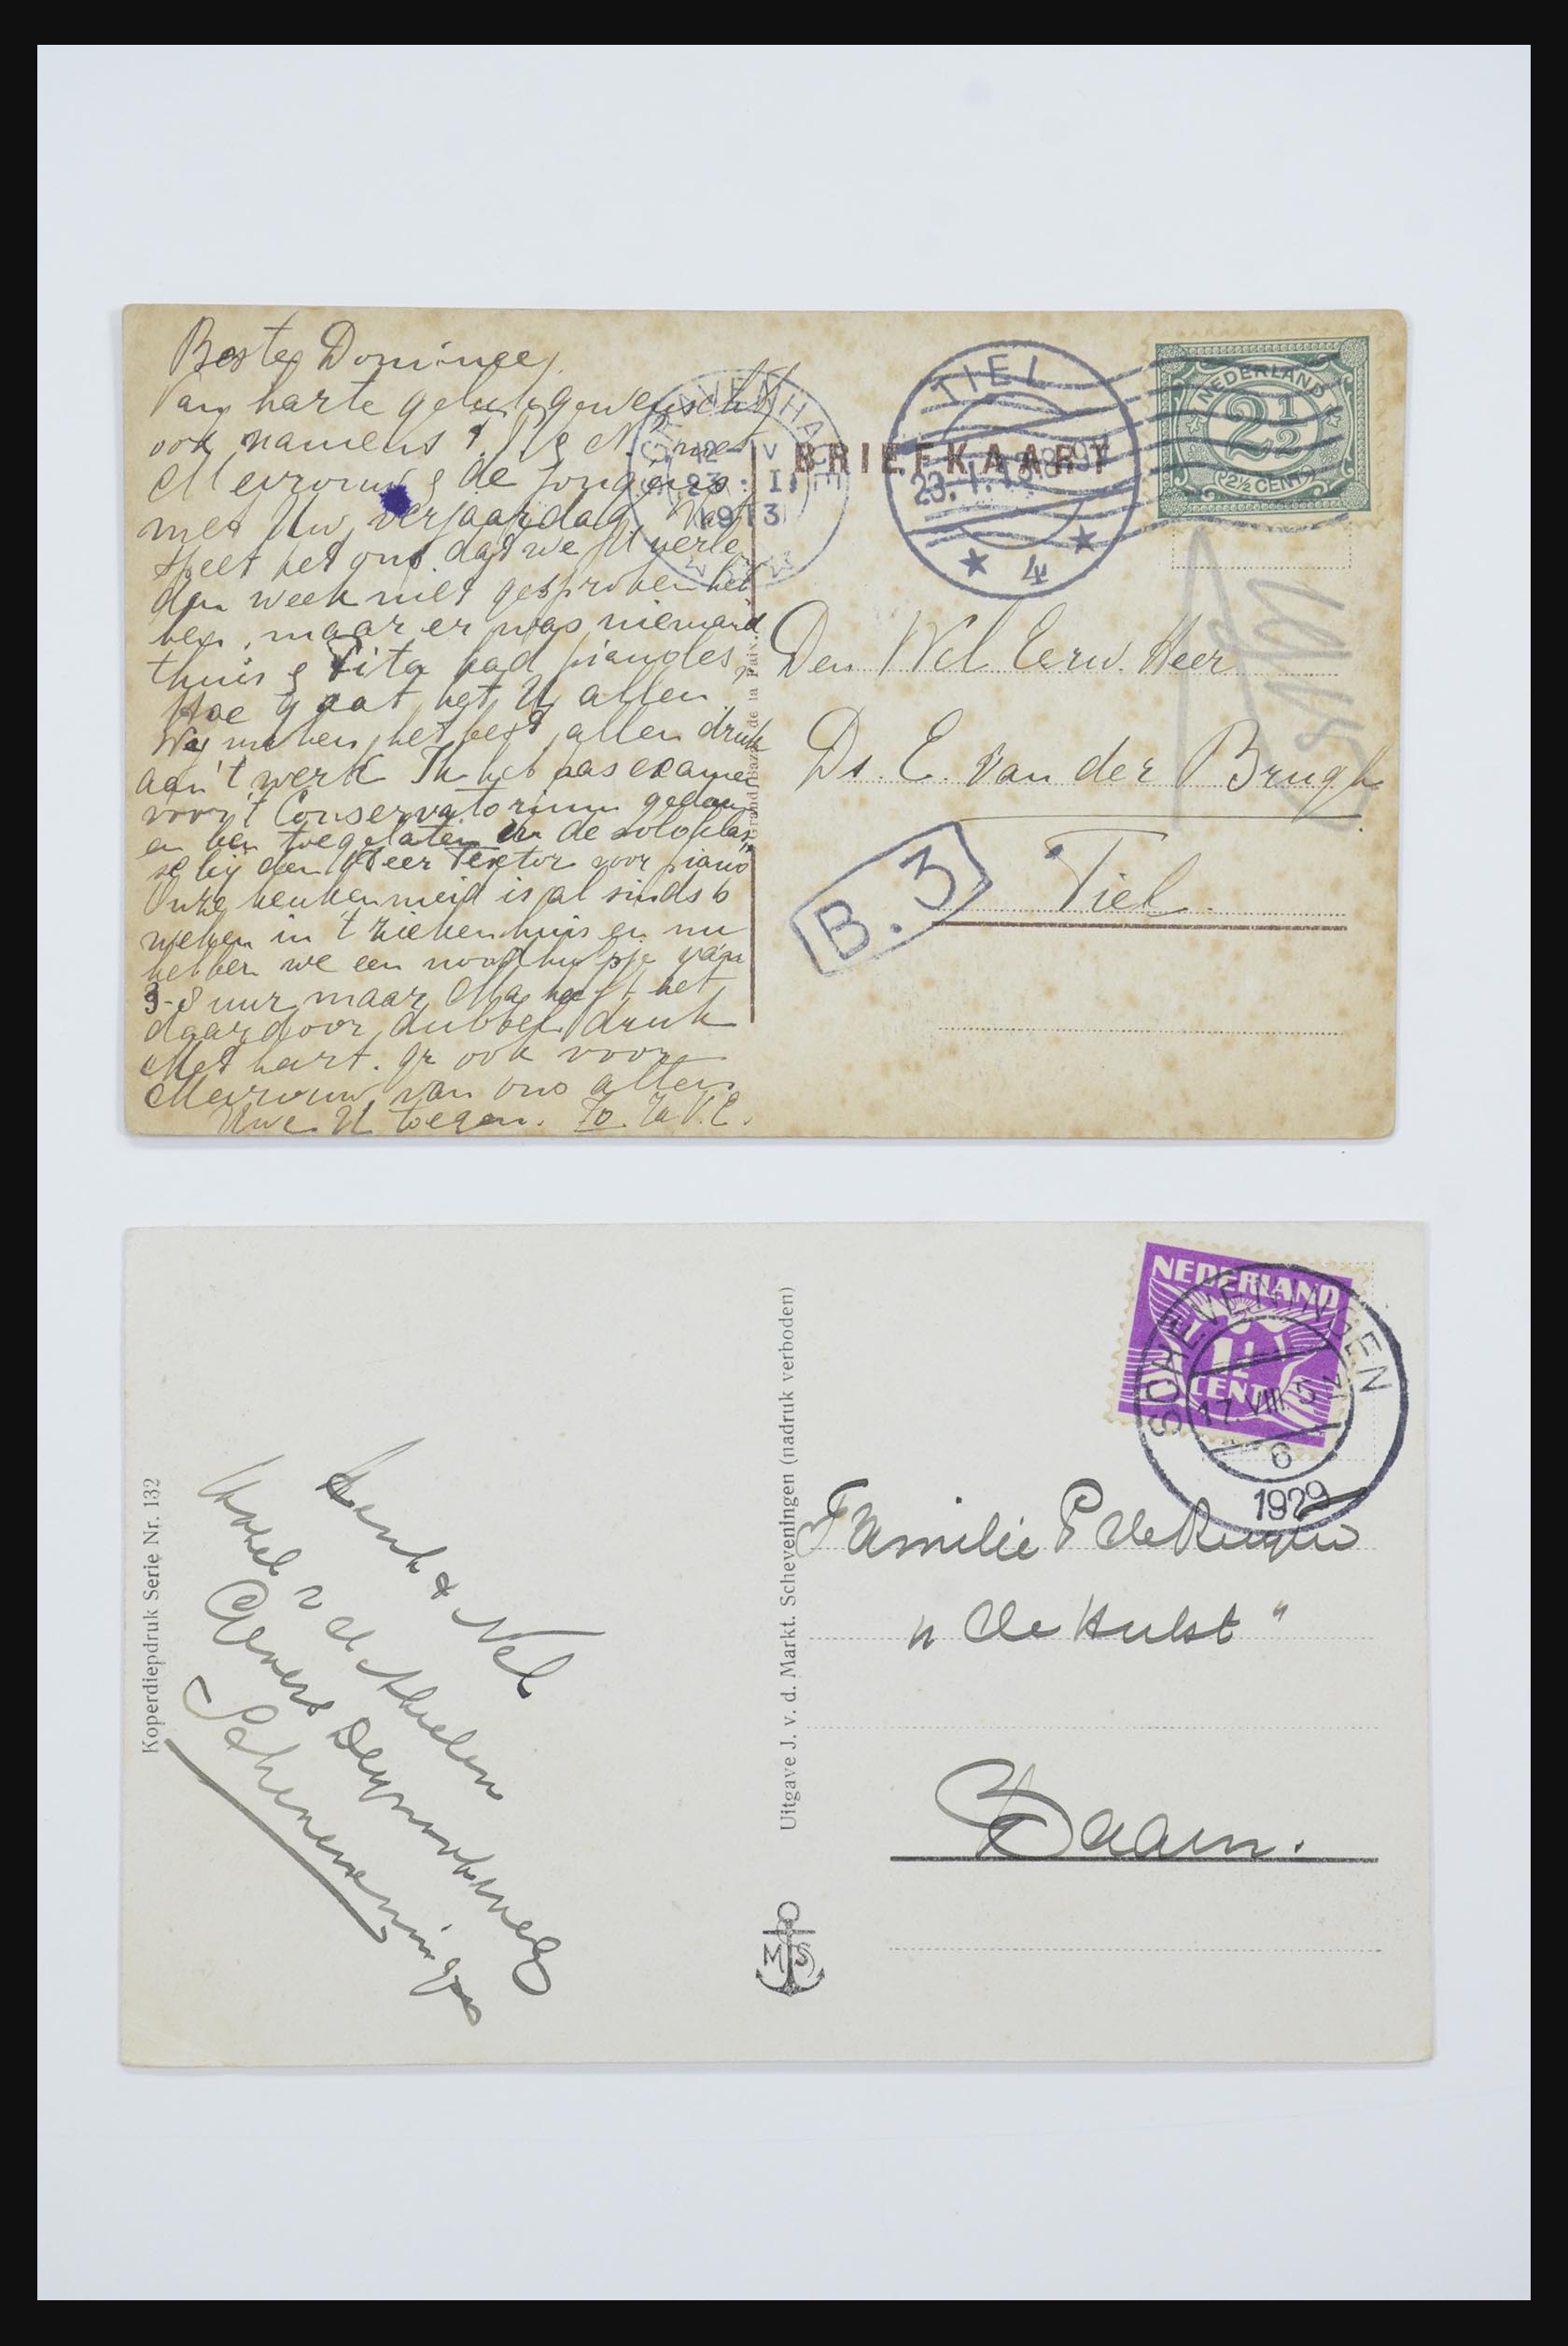 Beste Dominee,
Van harte gelukgewenscht
ook namens P. & M. met
Mevrouw & de jongens
met Uw verjaardag. Wat
speet het ons dat we U verle
den week niet gesproken heb
ben, maar er was niemand
thuis & Tita had pianoles.
Hoe gaat het U allen
Wij maken het best, allen druk
aan 't werk. Ik heb pas examen
voor 't Conservatorium gedaan
en ben toegelaten in de soloklas
se bij den Heer Textor voor piano
Onze keukenmeid is al sinds 6
weken in 't ziekenhuis en nu
hebben we een noodhulpje van
3-8 uur maar Ma heeft het
daardoor dubbel druk
Met hart. gr ook voor
Mevrouw van ons allen
Uwe U toegen. Jo.
'S GRAVENHAGE
12 - V
23 : I
1913
BRIEFKAART
TIEL
23. 1. 13
4
NEDERLAND
2½
2½ CENT
Grand Bazar de la Paix.
Den Wel Eerw. Heer
Ds. E. van der Brugh
B. 3
Tiel.
Koperdiepdruk Serie Nr. 132
Henk & Nel
Hotel v d Thielen
Gevers Deynootweg
Scheveningen
Uitgave J. v. d. Markt. Scheveningen (nadruk verboden)
MS
NEDERLAND
1½
CENT
SCHEVENINGEN
17 VIII 5 V
6
1929
Familie P de
"de Hulst"
Baarn.